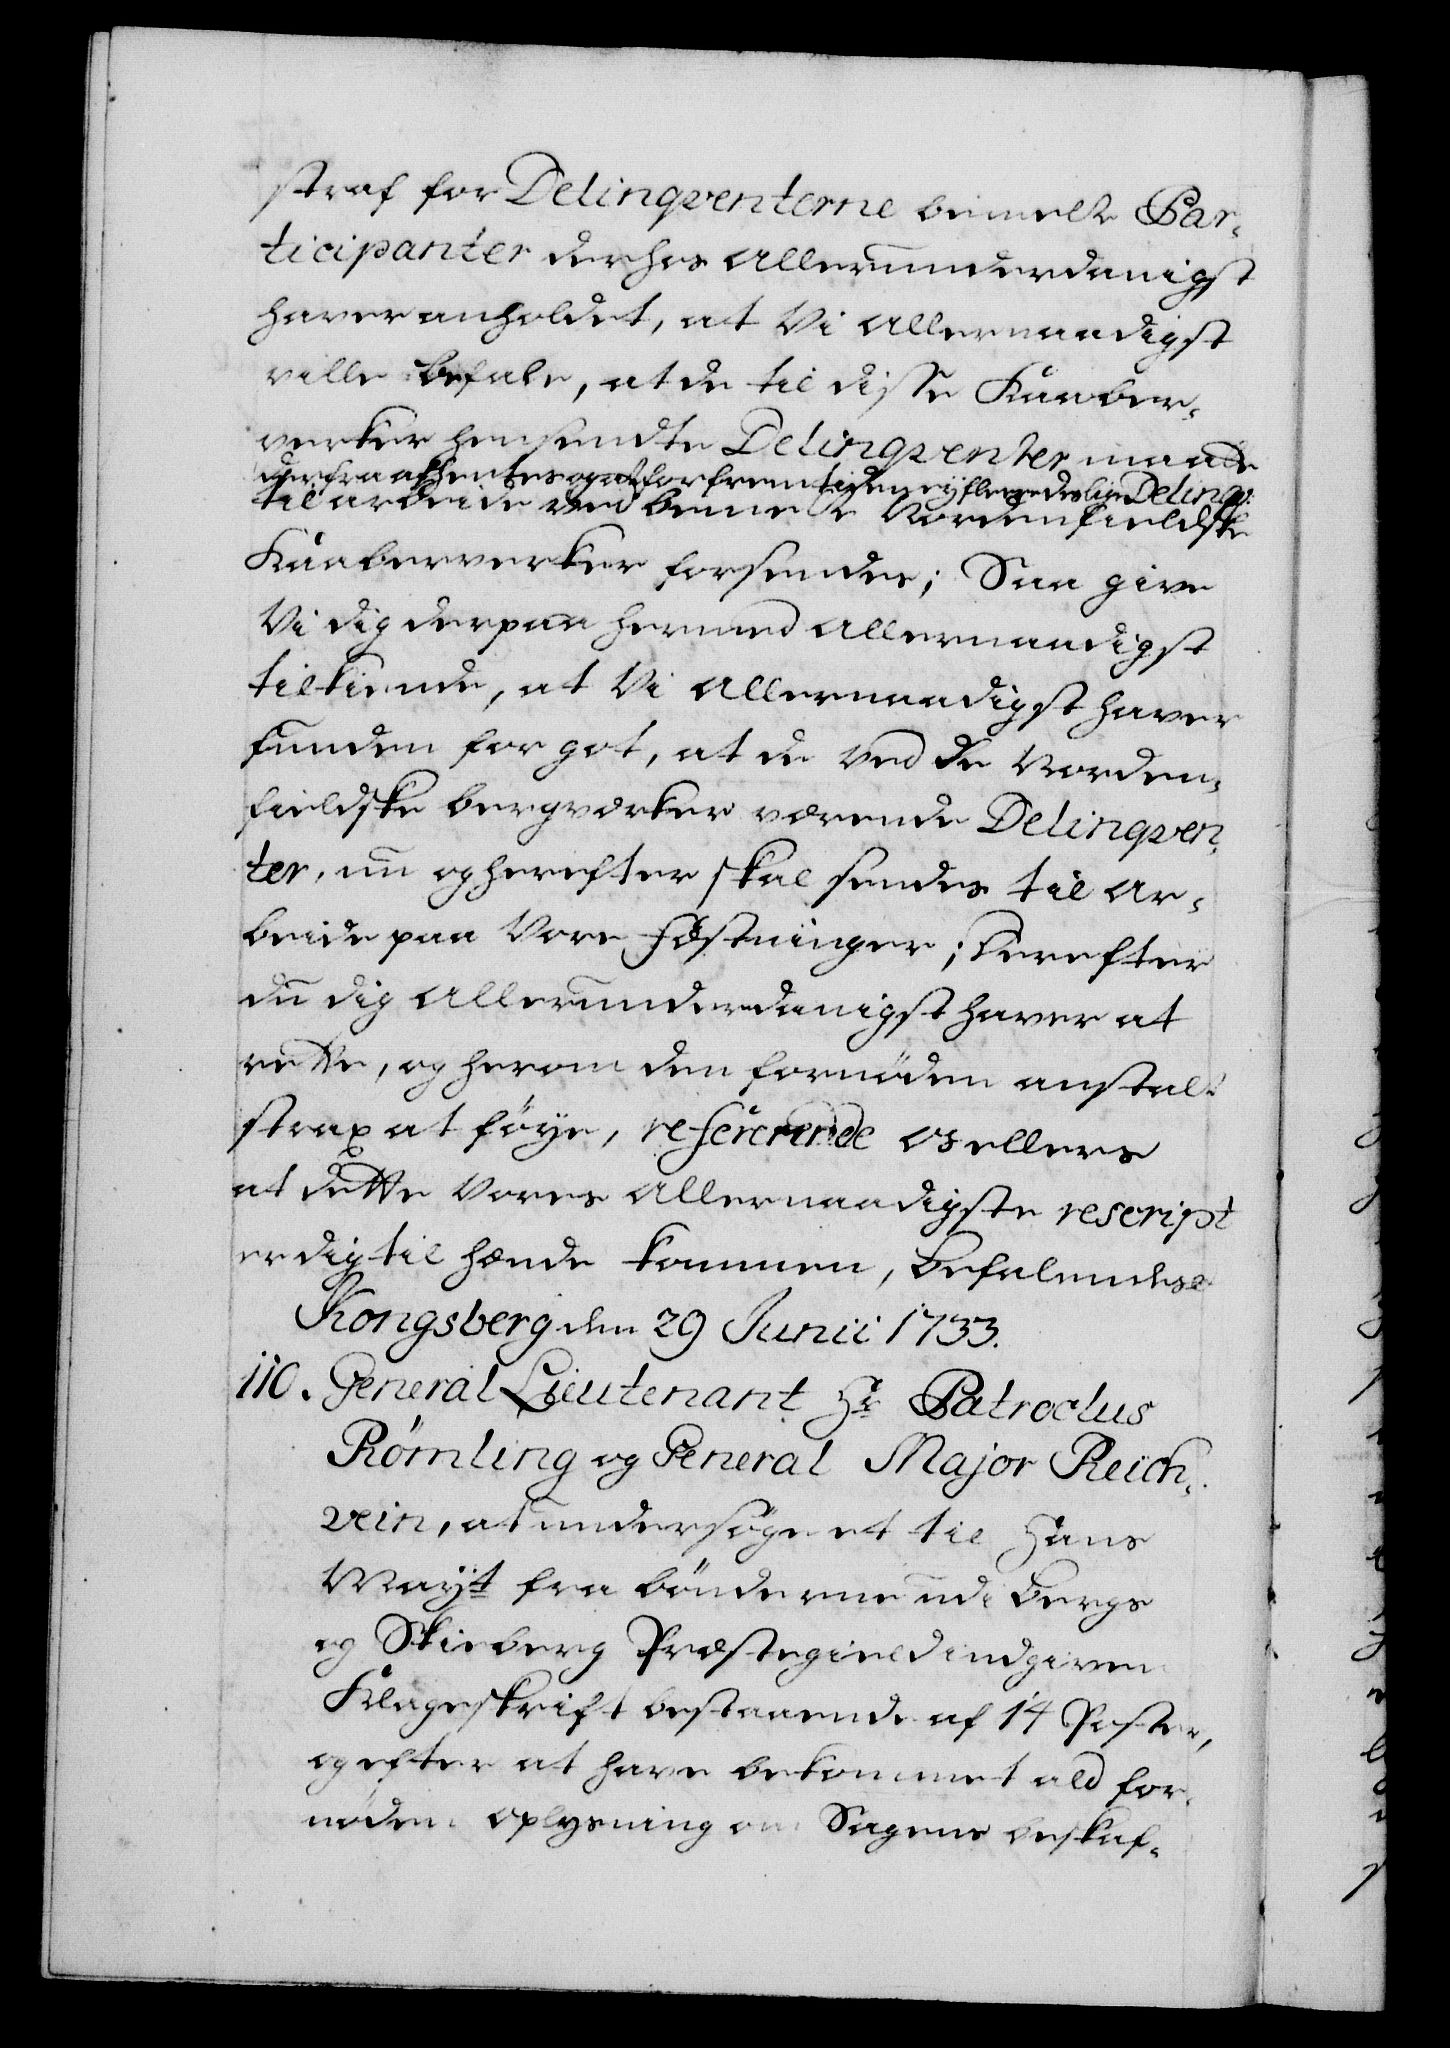 straf for Delinqventerne bemelte Par-
ticipanter derhos allerunderdanigst
haver anholdet, at Vi allernaadigst
ville befale, at de til disse Kaaber-
verker hensendte Delinqventer maatte
derfra afhentes og at for fremtiden ey fleere deslige Delinqv:
til arbeide ved bemelte Nordenfieldske
Kaaberverker forsendes; Saa give
Vi dig derpaa hermed allernaadigst
tilkiende, at Vi allernaadigst haver
funden for got, at de ved de Norden-
fieldske bergværker værende Delinqven-
ter, nu og herefter skal sendes til ar-
beide paa Vore Fæstninger; Derefter
du dig allerunderdanigst haver at
rette, og herom den fornøden anstalt
strax at føye, refererende os ellers
at dette Vores allernaadigste rescript
er dig til hænde kommen, Befalendes
Kongsberg den 29 Junii 1733.
110. General Lieutenant Hr Patroclus
Rømling og General Major Reich-
vein, at undersøge et til Hans
Mayt fra bønderne udi Bergs
og Skieberg Præstegield indgiven
Klageskrift bestaaende af 14 Poster,
og efter at have bekommet ald for-
nøden oplysning om Sagens beskaf-